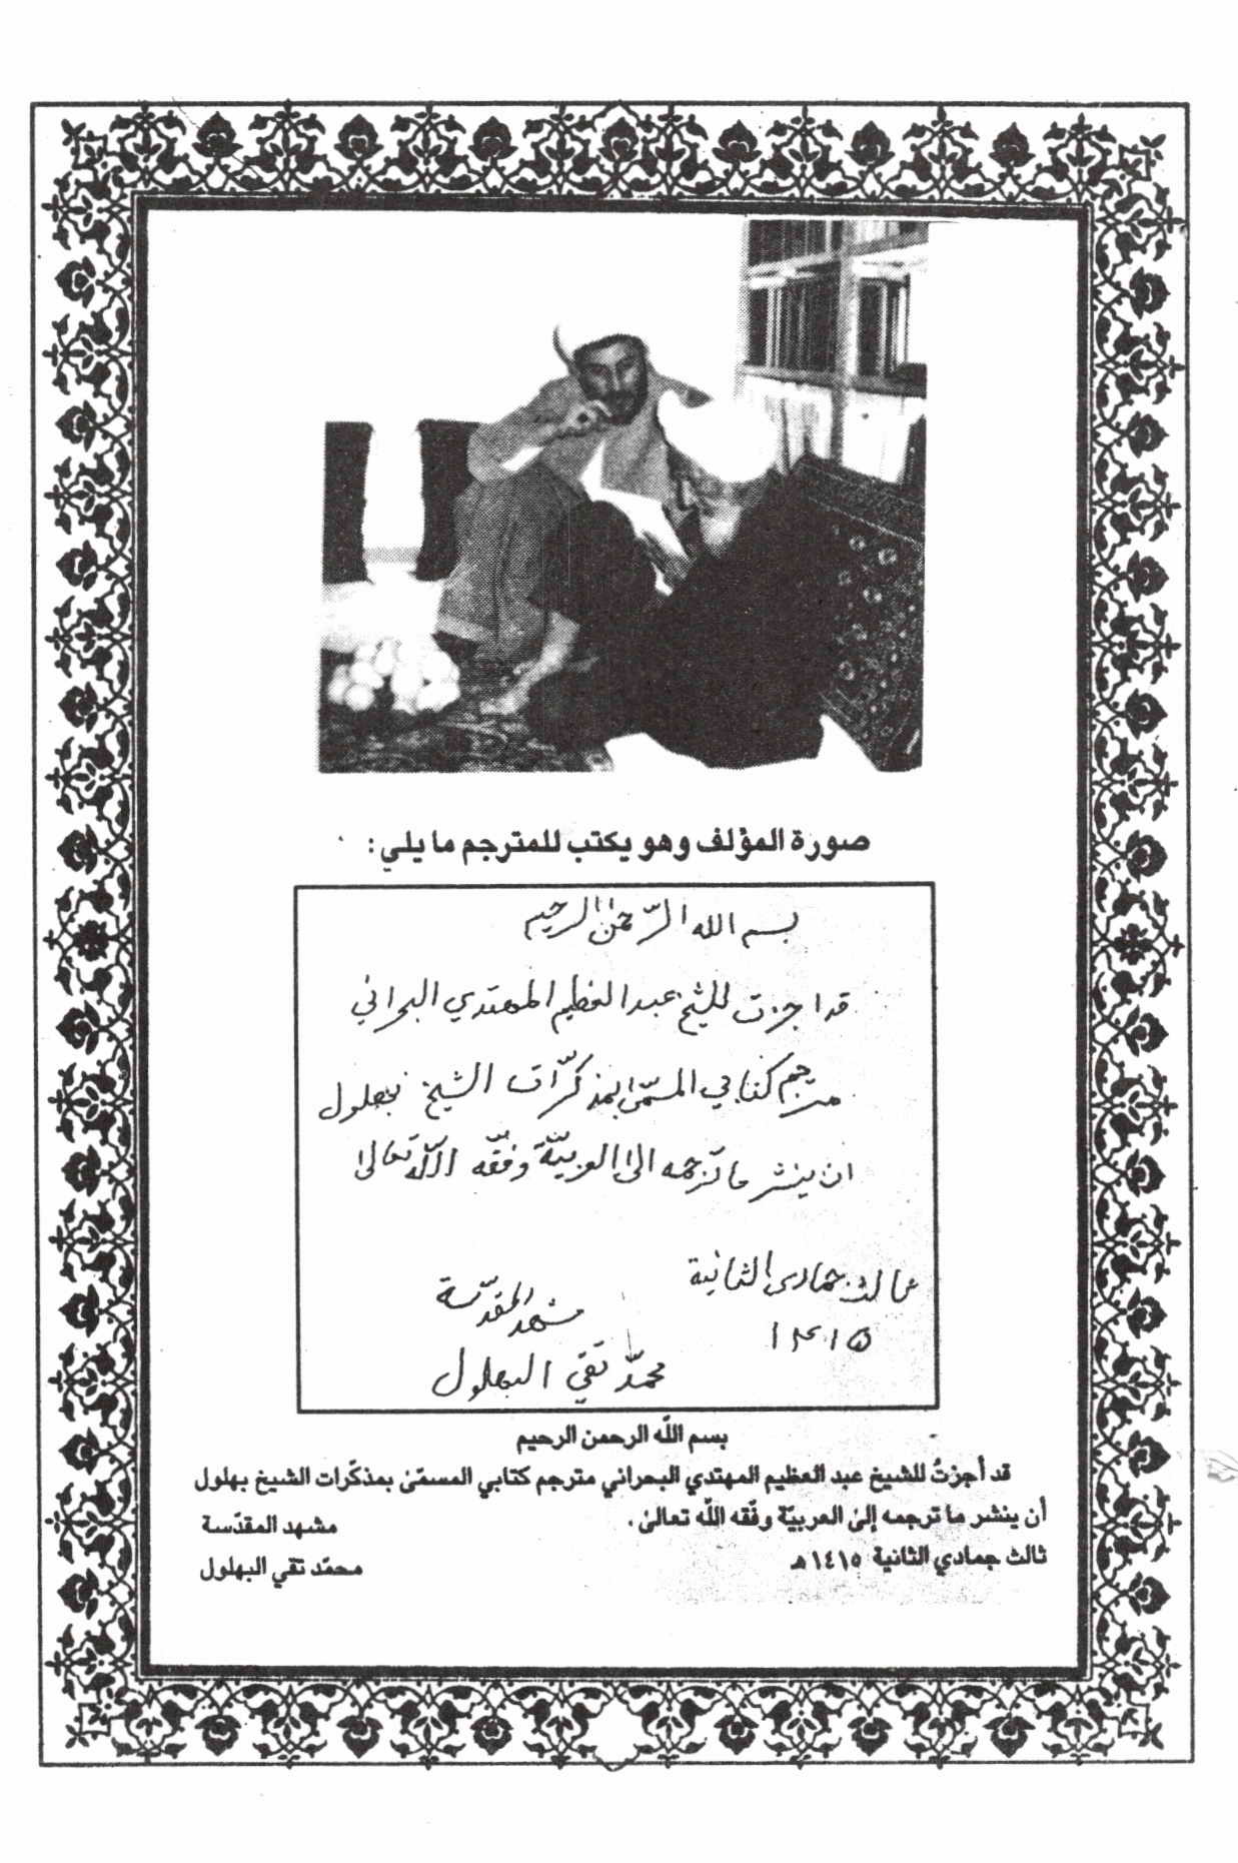 صورة المؤلف وهو يكتب للمترجم ما يلي:
بسم الله الرّحمن الرحيم
قد اجزت للشيخ عبد العظيم المهتدي البحراني
مترجم كتابي المسمّىٰ بمذكّرات الشيخ بهلول
ان ينشر ما ترجمه الىٰ العربيّة وفّقه اللّه تعالىٰ
ثالث جمادى الثانية
مشهد المقدّسة
١٤١٥
محمّد تقي البهلول
بسم اللّه الرحمن الرحيم
قد أجزتُ للشيخ عبد العظيم المهتدي البحراني مترجم كتابي المسمّىٰ بمذكّرات الشيخ بهلول
أن ينشر ما ترجمه إلىٰ العربيّة وفّقه اللّه تعالىٰ .
مشهد المقدّسة
ثالث جمادي الثانية ١٤١٥ هـ
محمّد تقي البهلول